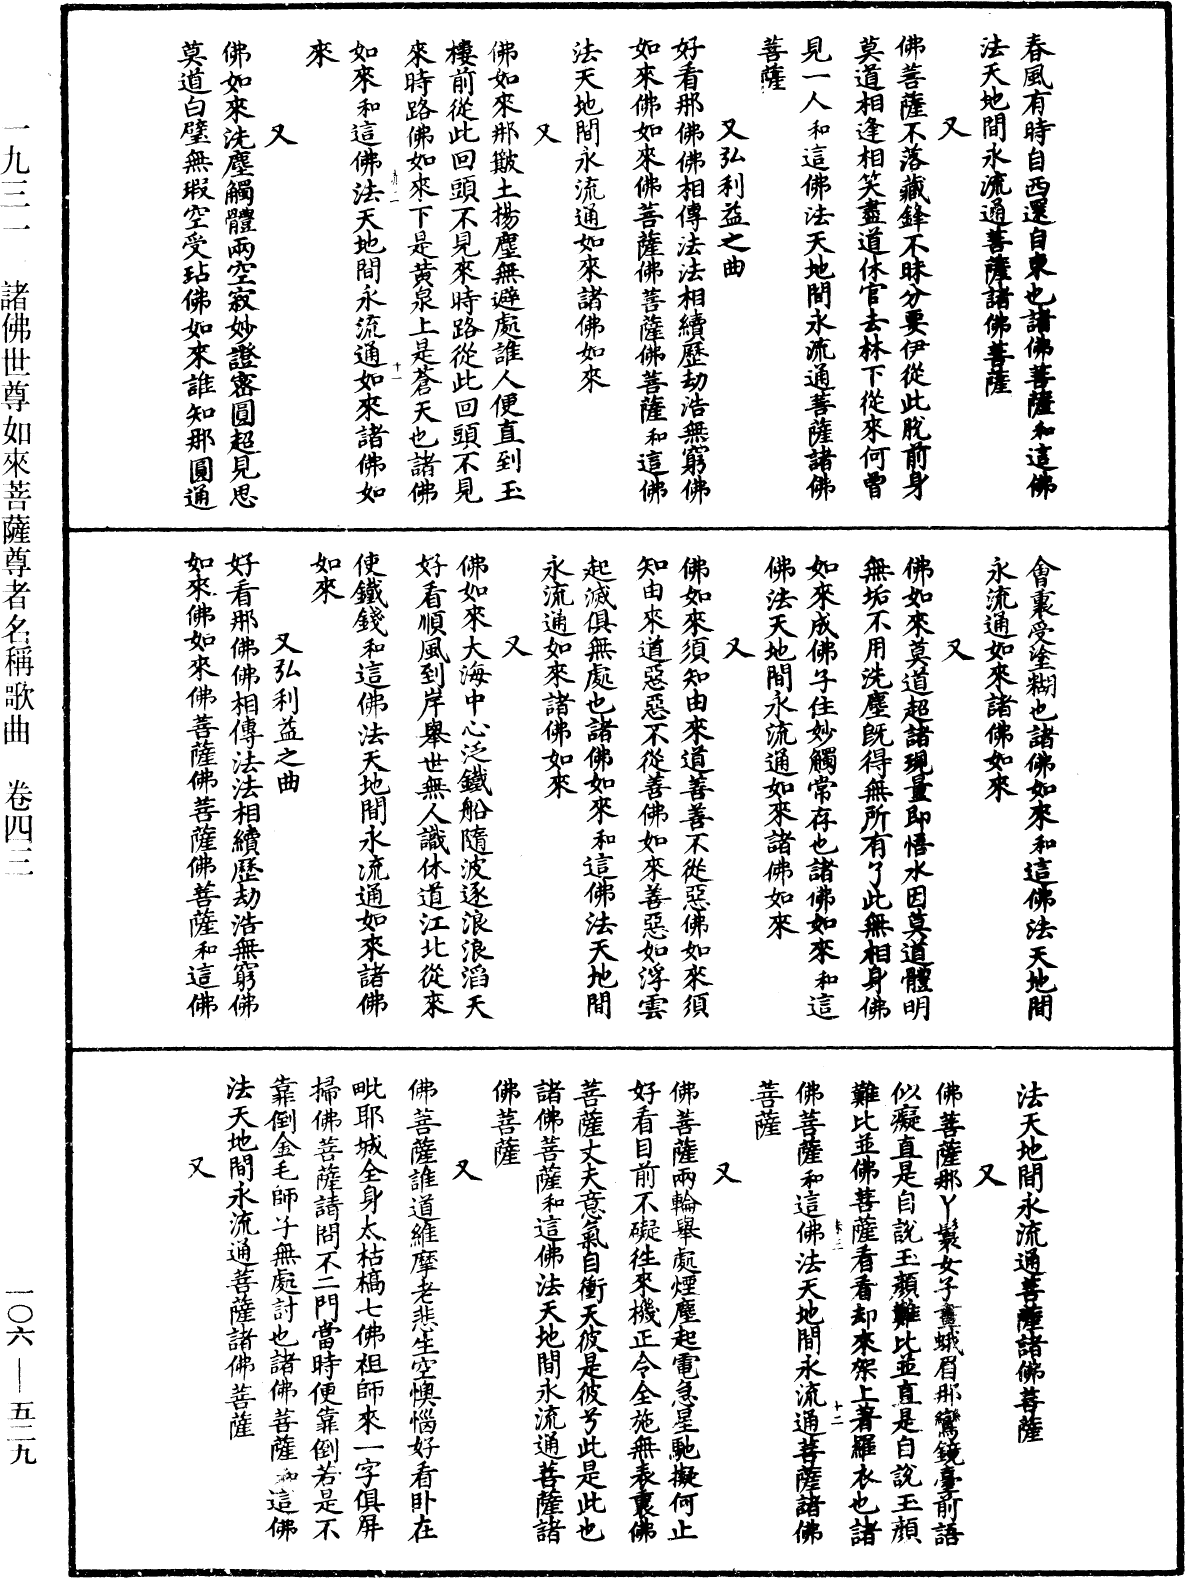 春風有時自西還自東也諸佛菩薩和這佛
法天地間永流通菩薩諸佛菩薩
又
佛菩薩不落藏鋒不昧分要伊從此脫前身
莫道相逢相笑盡道休官去林下從來何曾
見一人和這佛法天地間永流通菩薩諸佛
菩薩
又弘利益之曲
好看那佛佛相傳法法相續歷劫浩無窮佛
如來佛如來佛菩薩佛菩薩佛菩薩和這佛
法天地間永流通如來諸佛如來
又
佛如來那擻土揚塵無避處誰人便直到玉
樓前從此回頭不見來時路從此回頭不見
來時路佛如來下是黃泉上是蒼天也諸佛
如來和這佛法天地間永流通如來諸佛如
來
又
佛如來洗塵觸體兩空寂妙證密圓超見思
莫道白璧無瑕空受玷佛如來誰知那圓通
會裏受塗糊也諸佛如來和這佛法天地間
永流通如來諸佛如來
又
佛如來莫道超諸現量即悟水因莫道體明
無垢不用洗塵既得無所有了此無相身佛
如來成佛子住妙觸常存也諸佛如來和這
佛法天地間永流通如來諸佛如來
又
佛如來須知由來道善善不從惡佛如來須
知由來道惡惡不從善佛如來善惡如浮雲
起滅俱無處也諸佛如來和這佛法天地間
永流通如來諸佛如來
又
佛如來大海中心泛鐵船隨波逐浪浪滔天
好看順風到岸舉世無人識休道江北從來
使鐵錢和這佛法天地間永流通如來諸佛
如來
又弘利益之曲
好看那佛佛相傳法法相續歷劫浩無窮佛
如來佛如來佛菩薩佛菩薩佛菩薩和這佛
法天地間永流通菩薩諸佛菩薩
又
佛菩薩那丫鬟女子畫蛾眉那鸞鏡臺前語
似癡直是自說玉顏難比並直是自說玉顏
難比並佛菩薩看看却來架上著羅衣也諸
佛菩薩和這佛法天地間永流通菩薩諸佛
菩薩
又
佛菩薩兩輪舉處煙塵起電急星馳擬何止
好看目前不礙往來機正令全施無表裏佛
菩薩丈夫意氣自衝天彼是彼兮此是此也
諸佛菩薩和這佛法天地間永流通菩薩諸
佛菩薩
又
佛菩薩誰道維摩老悲生空懊惱好看臥在
毗耶城全身太枯槁七佛祖師來一字俱屏
掃佛菩薩請問不二門當時便靠倒若是不
靠倒金毛師子無處討也諸佛菩薩和這佛
法天地間永流通菩薩諸佛菩薩
又
一九三一 諸佛世尊如來菩薩尊者名稱歌曲 卷四三
一〇六 — 五二九